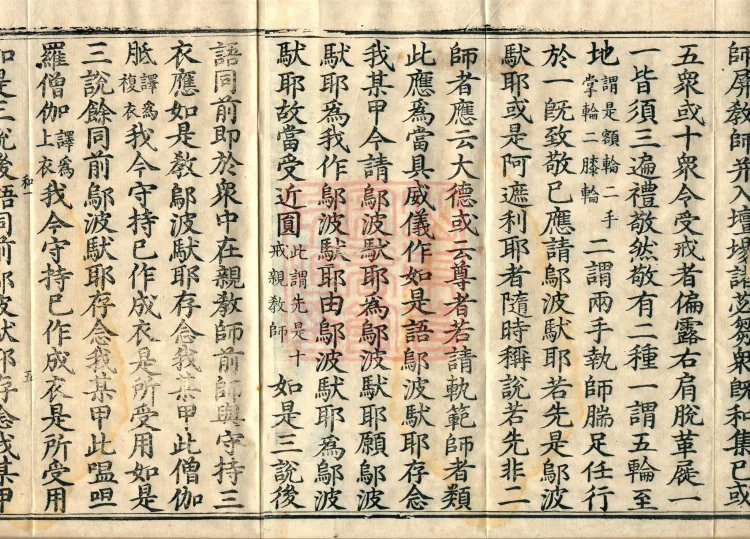 師屏教師并入壇場諸苾芻衆旣和集已或
五衆或十衆令受戒者偏露右肩脫革屣一
一皆須三遍禮敬然敬有二種一謂五輪至
地謂是額輪二手掌輪二膝輪二謂兩手執師腨足任行
於一旣致敬已應請鄔波馱耶若先是鄔波
馱耶或是阿遮利耶者隨時稱說若先非二
師者應云大德或云尊者若請軌範師者類
此應爲當具威儀作如是語鄔波馱耶存念
我某甲今請鄔波馱耶爲鄔波馱耶願鄔波
馱耶爲我作鄔波馱耶由鄔波馱耶爲鄔波
馱耶故當受近圓此謂先是十戒親教師如是三說後
語同前即於衆中在親教師前師與守持三
衣應如是教鄔波馱耶存念我某甲此僧伽
胝譯爲複衣我今守持已作成衣是所受用如是
三說餘同前鄔波馱耶存念我某甲此嗢呾
羅僧伽譯爲上衣我今守持已作成衣是所受用
和一 五
如是三說後語同前鄔波馱耶存念我某甲